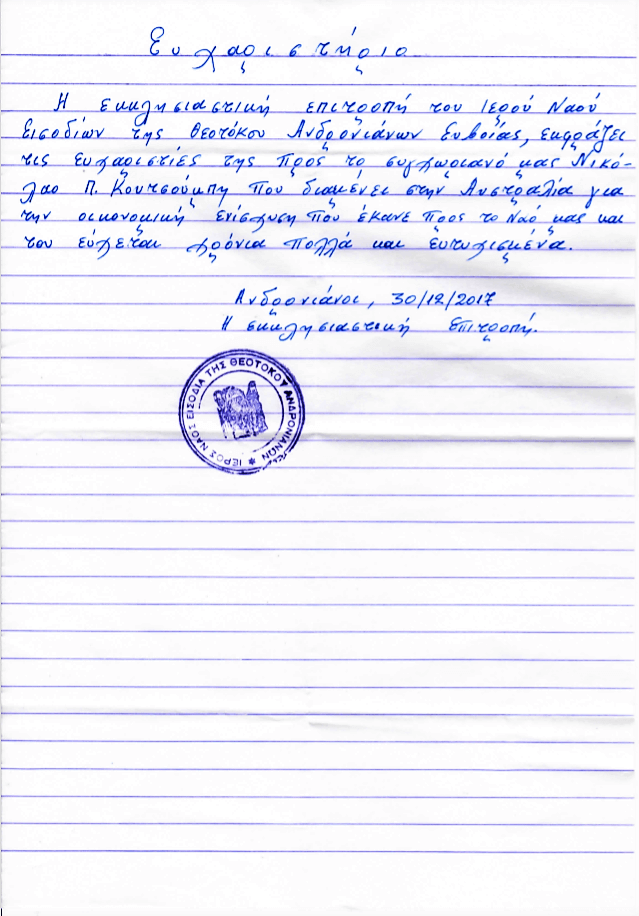 Ευχαριστήριο
Η εκκλησιαστική επιτροπή του Ιερού Ναού
Εισοδίων της Θεοτόκου Ανδρονιάνων Ευβοίας, εκφράζει
τις ευχαριστίες της προς το συγχωριανό μας Νικό-
λαο Π. Κουτσούκπη που διαμένει στην Αυστραλία για
την οικονομική ενίσχυση που έκανε προς το Ναό μας και
του εύχεται χρόνια πολλά και ευτυχισμένα.
Ανδρονιάνοι, 30/12/2017
Η εκκλησιαστική Επιτροπή.
ΙΕΡΟΣ ΝΑΟΣ ΕΙΣΟΔΙΑ ΤΗΣ ΘΕΟΤΟΚΟΥ ΑΝΔΡΟΝΙΑΝΩΝ